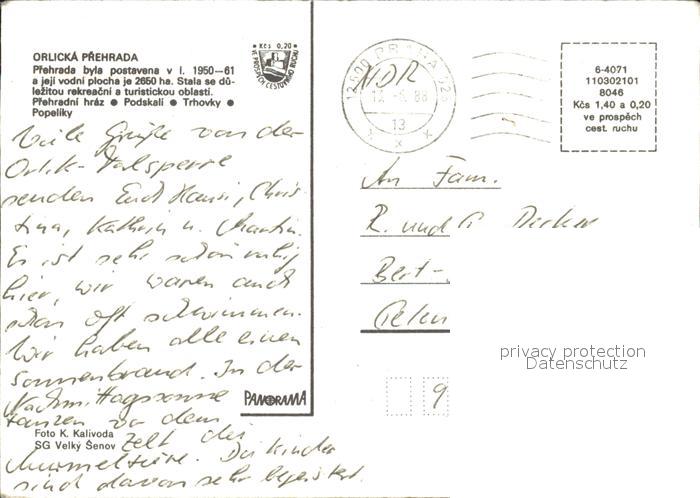 ORLICKÁ PŘEHRADA
Přehrada byla postavena v l. 1950—61
a její vodní plocha je 2650 ha. Stala se dů-
ležitou rekreační a turistickou oblastí.
Přehradní hráz ● Podskalí ● Trhovky ●
Popelíky
Kčs 0,20
VE PROSPĚCH CESTOVNÍHO RUCHU
Viele Grüße von der
Orlik-Talsperre
senden Euch Hansi, Chris-
tina, Kathrin u. Martin.
Es ist sehr schön ruhig
hier, wir waren auch
schon oft schwimmen.
Wir haben alle einen
Sonnenbrand. In der
Nachmittagssonne
tanzen vor dem
Zelt die
Murmeltiere. Die Kinder
sind davon sehr begeistert.
PANORAMA
Foto K. Kalivoda
SG Velký Šenov
PRAHA
88
13
6-4071
110302101
8046
Kčs 1,40 a 0,20
ve prospěch
cest. ruchu
An Fam.
R. und
Bert-
9
privacy protection
Datenschutz